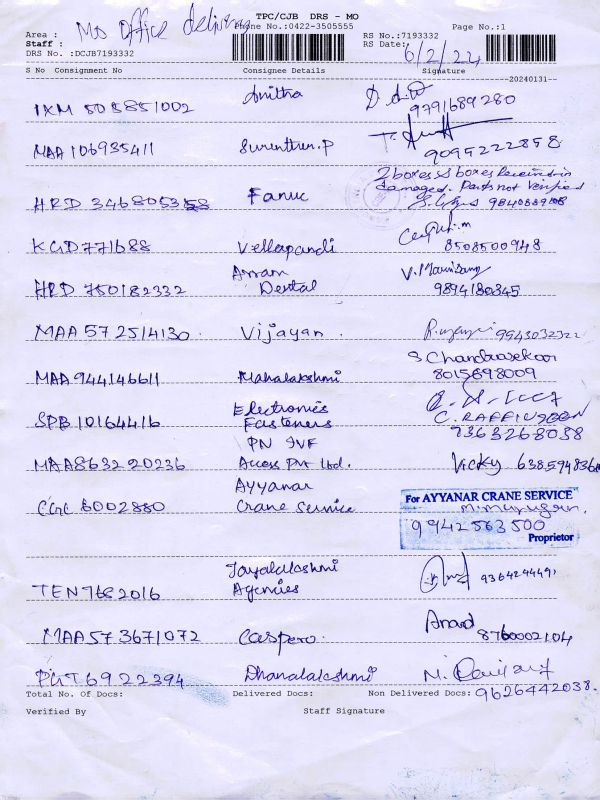 Mo Office delivery
TPC/CJB DRS - MO
Phone No.:0422-3505555
Page No.:1
Area :
Staff :
DRS No. :DCJB7193332
RS No.:7193332
RS Date: 6/2/24
S No Consignment No Consignee Details Signature
20240131
IXM 503851002 Anitha 9791689280
MAA 106935411 Surenthren.P 9095222858
2 boxes boxes Received in
damaged. Parts not Verified
HRD Fanuc
KGD771688 Vellapandi 8508500948
Assam
HRD 750182332 Dental 9894180345
MAA 572514130 Vijayan . 9943032322
S Chandrasekar
MAA 944146611 Mahalakshmi 8015898009
Electronics
SPB 10164416 Fasteners C. RAFFIUDEEN
PN IVF 7363268038
MAA863220236 Access Pvt Ltd. Vicky
Ayyanar For AYYANAR CRANE SERVICE
Crane Service M. Murugan.
9942563500
Proprietor
Jayalakshmi
TEN7682016 Agencies 9364244491
MAA573671072 Caspero. Anand 8760002104
PGT6922394 Dhanalakshmi
Total No. Of Docs: Delivered Docs: Non Delivered Docs: 9626442038.
Verified By Staff Signature